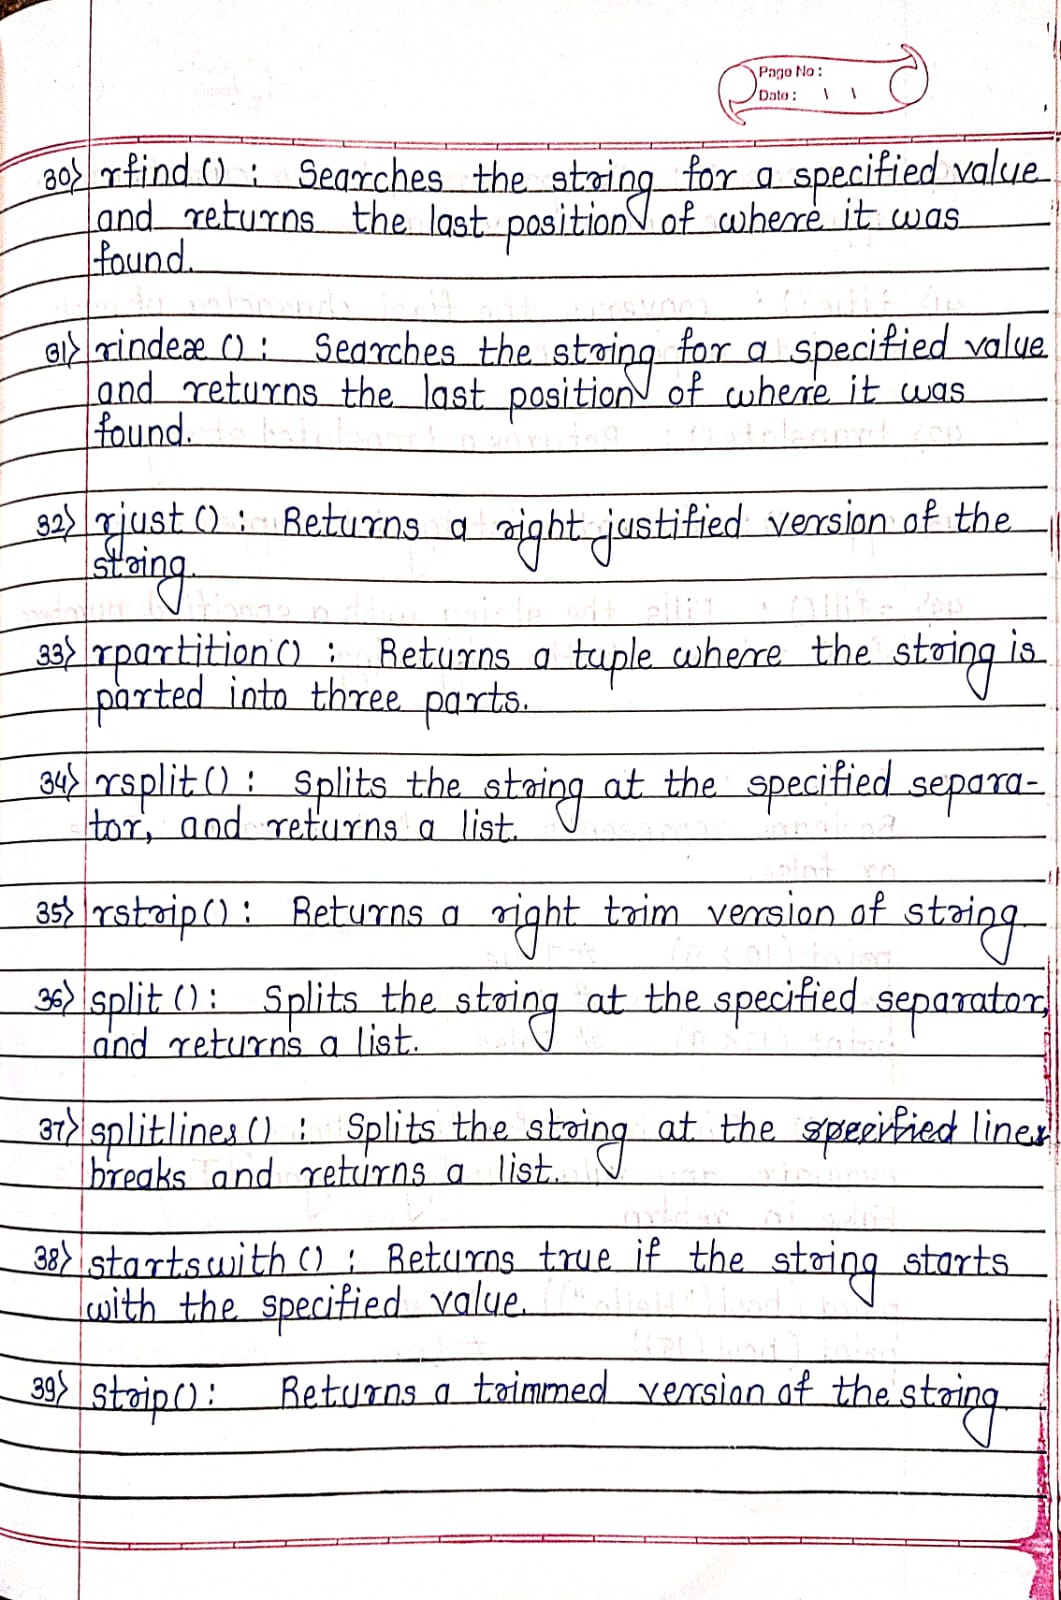 Page No :
Date : \ \
30} rfind () : Searches the string for a specified value
and returns the last position of where it was
found.
31} rindex () : Searches the string for a specified value
and returns the last position of where it was
found.
32} rjust () : Returns a right justified version of the
string.
33} rpartition () : Returns a tuple where the string is
parted into three parts.
34} rsplit () : Splits the string at the specified separa-
tor, and returns a list.
35} rstrip () : Returns a right trim version of string
36} split () : Splits the string at the specified separator,
and returns a list.
37} splitlines () : Splits the string at the specified line
breaks and returns a list.
38} startswith () : Returns true if the string starts
with the specified value.
39} strip () : Returns a trimmed version of the string